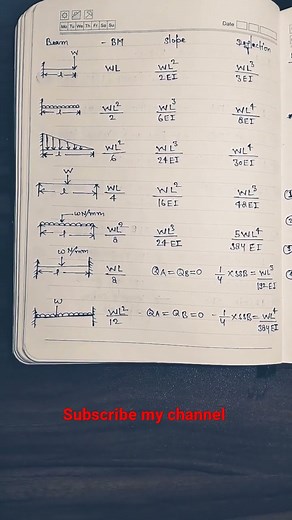 Date
Mo Tu We Th Fr Sa Su
Beam - BM Slope Deflection
W
l
WL WL²/2EI WL³/3EI
l
WL²/2 WL³/6EI WL⁴/8EI
l
WL²/6 WL³/24EI WL⁴/30EI
W
l
WL/4 WL²/16EI WL³/48EI
wN/mm
l
WL²/8 WL³/24EI 5WL⁴/384EI
wN/mm
l
WL/8 QA = QB = 0 1/4 × SSB = WL³/192EI
W
WL²/12 - QA = QB = 0 - 1/4 × SSB = WL⁴/384EI
Subscribe my channel